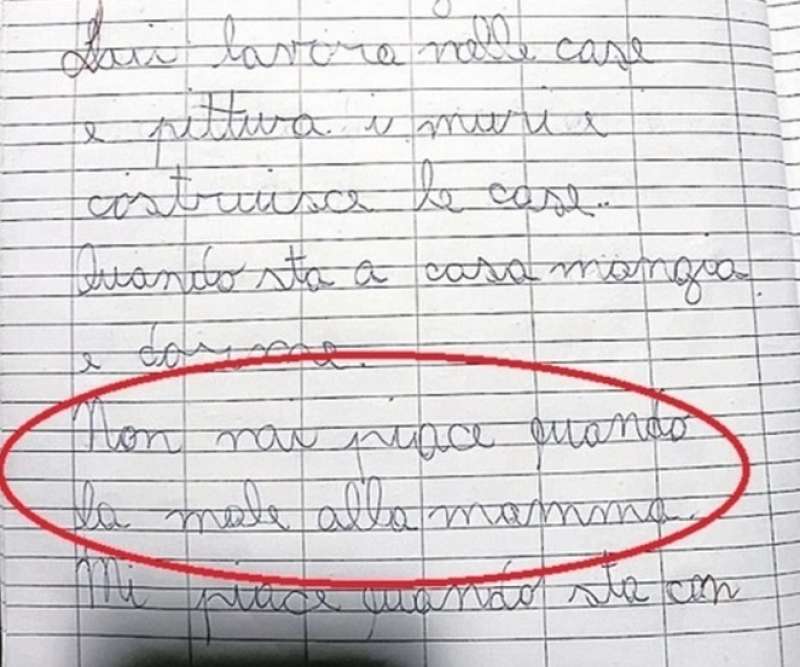 Lui lavora nelle case
e pittura i muri e
costruisce le case.
Quando sta a casa mangia
e dorme.
Non mi piace quando
fa male alla mamma.
Mi piace quando sta con